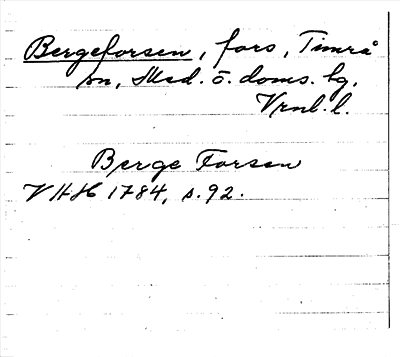 Bergeforsen, fors, Timrå
sn, Med. ö. doms. hg,
Vrnl. l.
Berge Forsen
VHH 1784, s. 92.